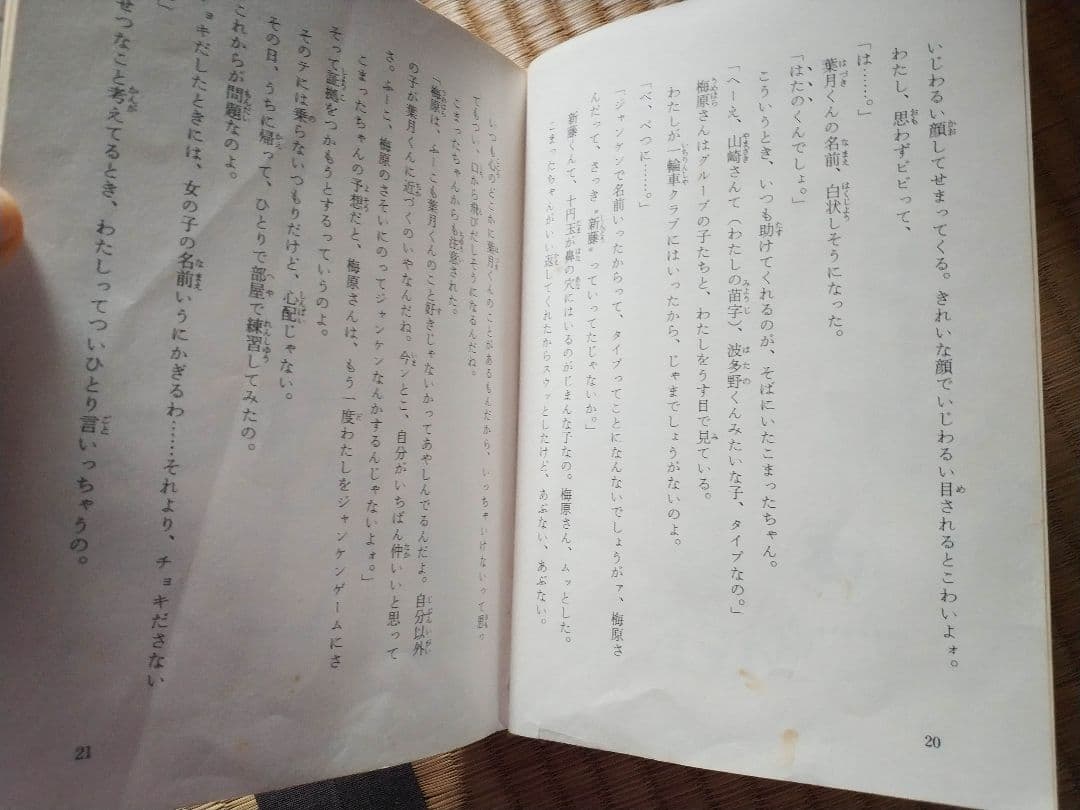 いじわるい顔してせまってくる。きれいな顔でいじわるい目されるとこわいよォ。
わたし、思わずビビって、
「は……。」
葉月くんの名前、白状しそうになった。
「はたのくんでしょ。」
こういうとき、いつも助けてくれるのが、そばにいたこまったちゃん。
「へーえ、山崎さんて（わたしの苗字）、波多野くんみたいな子、タイプなの。」
梅原さんはグループの子たちと、わたしをうす目で見ている。
わたしが一輪車クラブにはいったから、じゃまでしょうがないのよ。
「べ、べつに……。」
「ジャンケンで名前いったからって、タイプってことになんないでしょうがァ、梅原さ
んだって、さっき〝新藤〟っていってたじゃないか。」
新藤くんて、十円玉が鼻の穴にはいるのがじまんな子なの。梅原さん、ムッとした。
こまったちゃんがいい返してくれたからスウッとしたけど、あぶない、あぶない。
20
いつも心のどこかに葉月くんのことがあるもんだから、いっちゃいけないって思っ
てもつい、口から飛びだしそうになるんだね。
こまったちゃんからも注意された。
「梅原は、ふーこも葉月くんのこと好きじゃないかってあやしんでるんだよ。自分以外
の子が葉月くんに近づくのいやなんだね。今ンとこ、自分がいちばん仲いいと思って
さ。ふーこ、梅原のさそいにのってジャンケンなんかするんじゃないよォ。」
こまったちゃんの予想だと、梅原さんは、もう一度わたしをジャンケンゲームにさ
そって証拠をつかもうとするっていうのよ。
そのテには乗らないつもりだけど、心配じゃない。
その日、うちに帰って、ひとりで部屋で練習してみたの。
これからが問題なのよ。
チョキだしたときには、女の子の名前いうにかぎるわ……それより、チョキださない
」
せつなこと考えてるとき、わたしってついひとり言いっちゃうの。
21